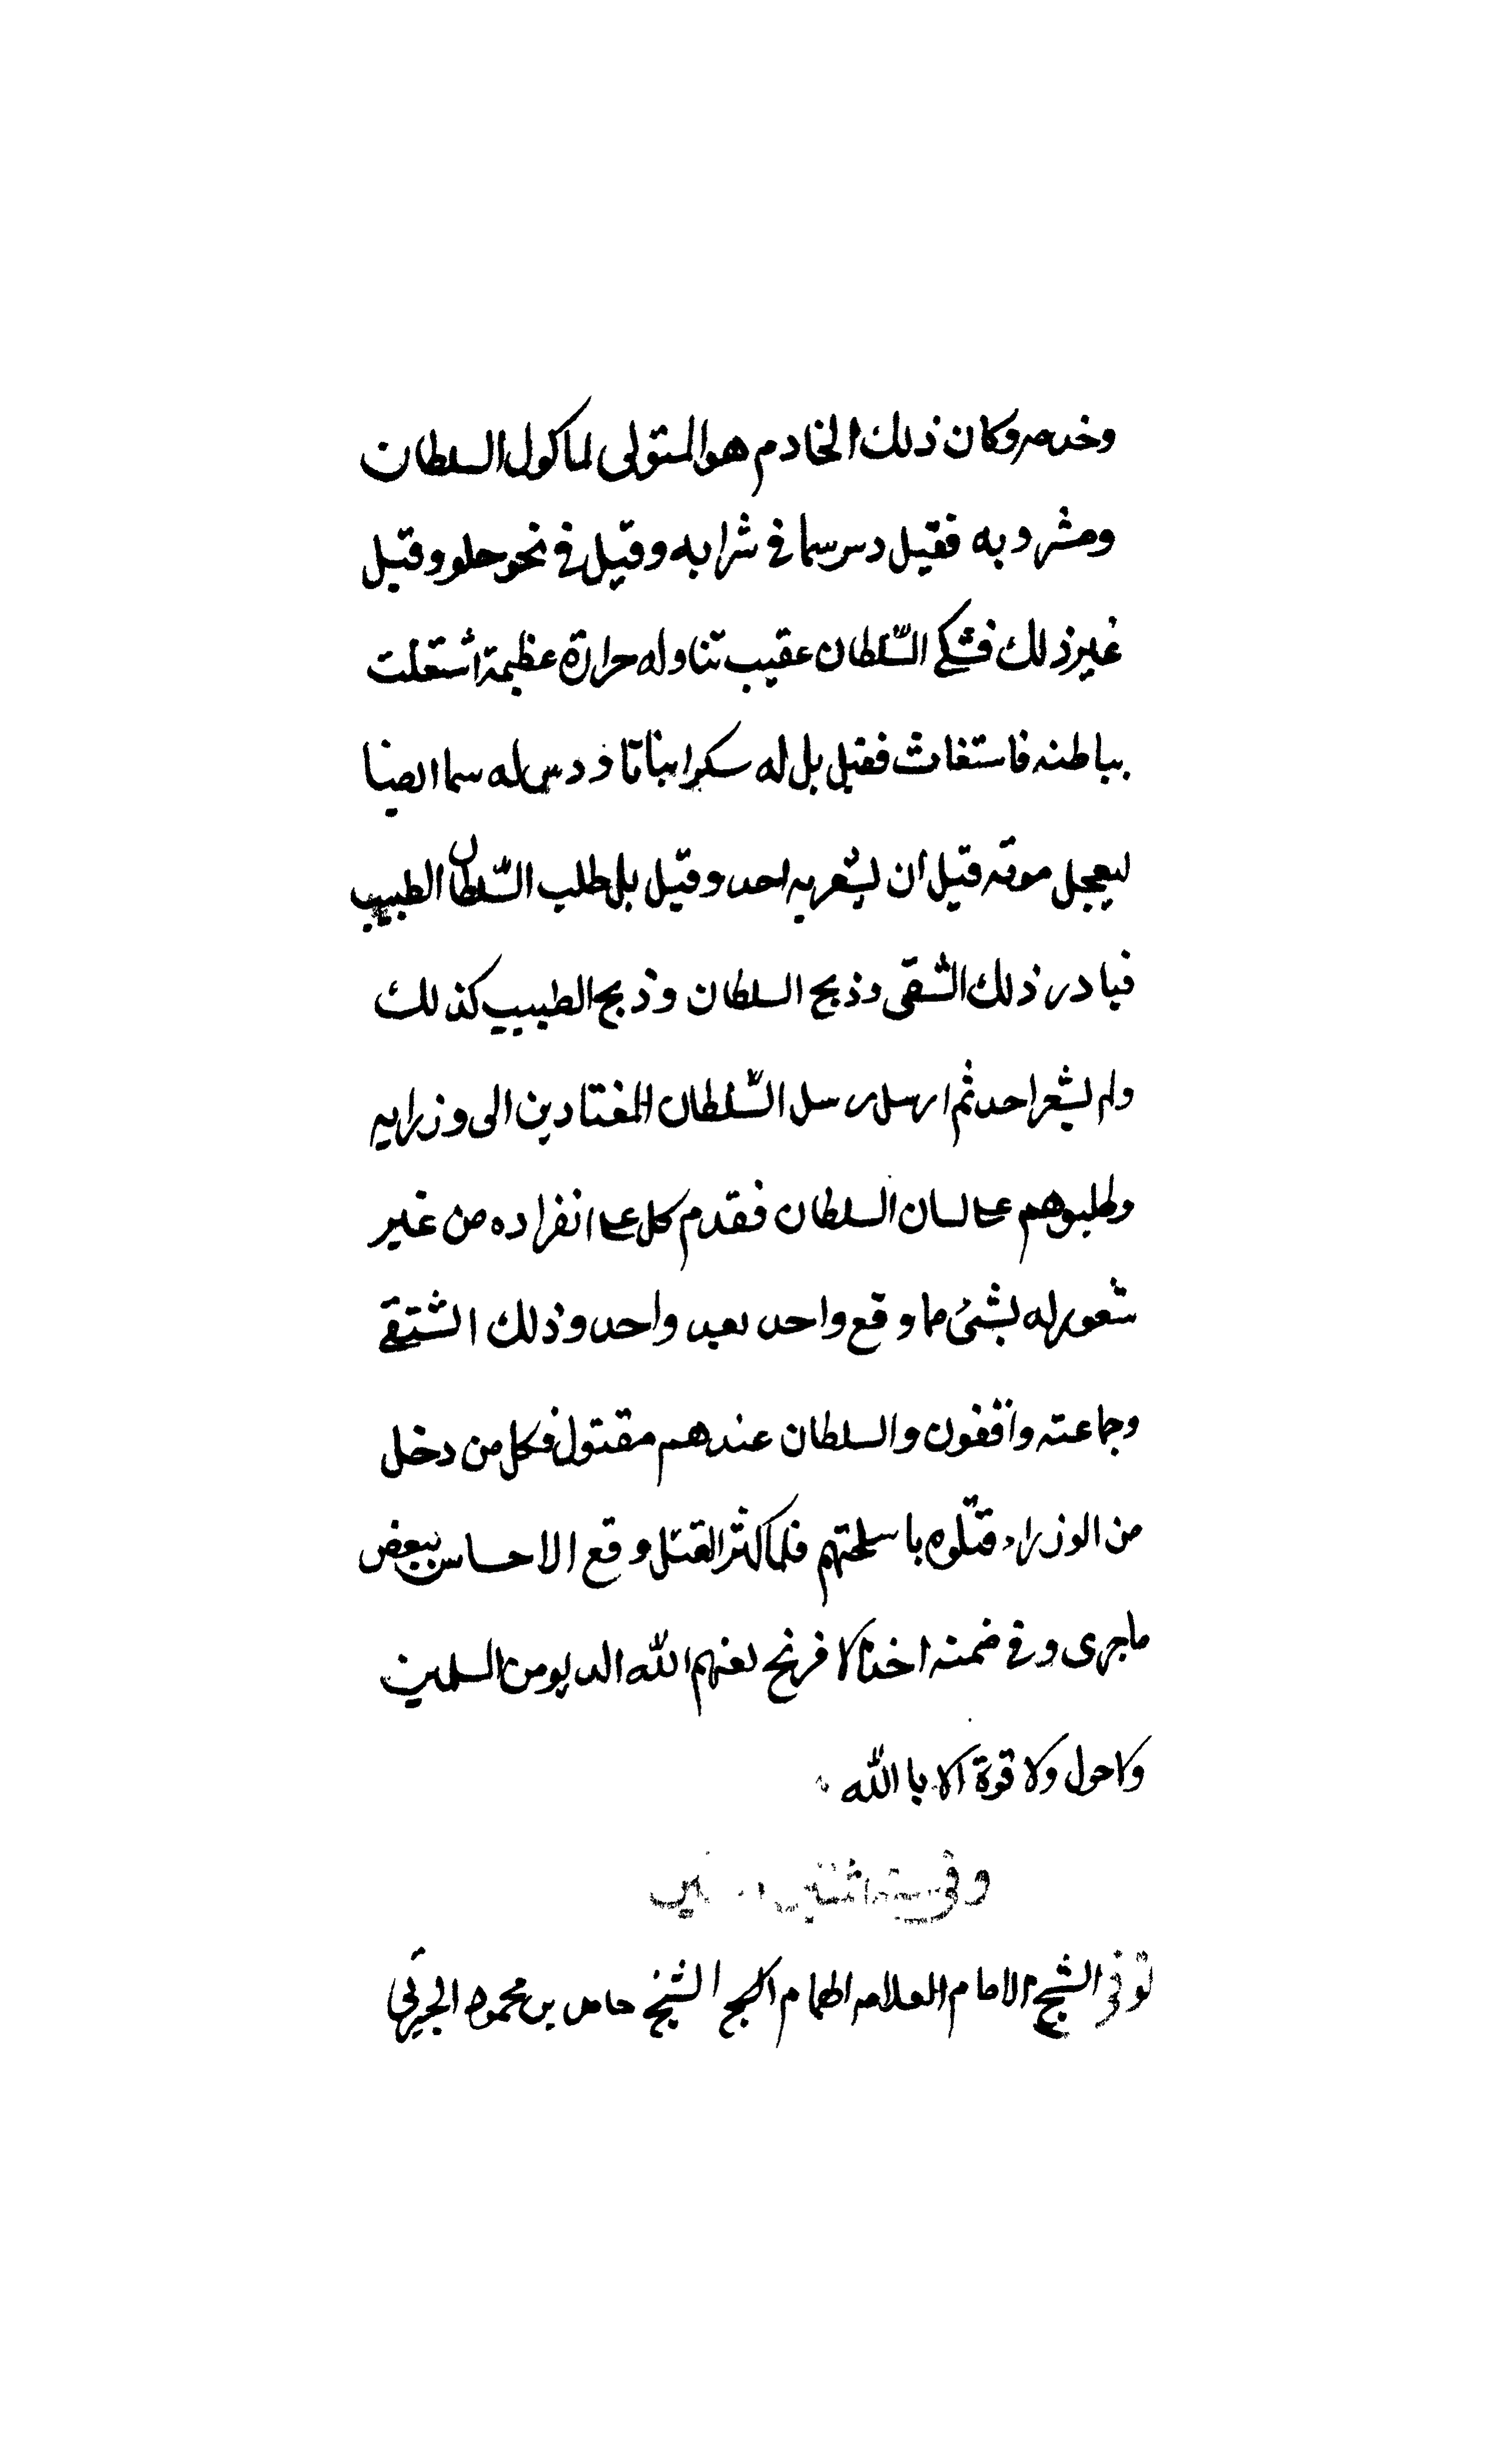 وخدمه وكان ذلك الخادم هو المتولى لماكول السلطان
ومشروبه فقيل دس سما في شرابه وقيل في نحو حلو وقيل
غير ذلك فشكى السّلطان عقيب تناوله حرارة عظيمة اشتعلت
بباطنه فاستغاث فقيل بل له سكرا نباتا ودس له سما ايضا
ليعجل موته قبل ان يشعر به احد وقيل بل طلب السّلطان الطبيب
فبادر ذلك الشقى وذبح السلطان وذبح الطبيب كذلك
ولم يشعر احد ثم ارسل رسل السّلطان المعتادين الى وزرايه
وطلبوهم على لسان السلطان فقدم كل على انفراده من غير
شعور له بشئ مما وقع واحد بعد واحد وذلك الشقى
وجماعته واقفون والسلطان عندهم مقتول فكل من دخل
من الوزراء قتلوه باسلحتهم فلما كثر القتل وقع الاحساس ببعض
ما جرى وفي ضمنه اخذ الافرنج لعنهم الله الديو من المسلمين
ولا حول ولا قوة الا بالله
وفي سنة اثنتين
توفي الشيخ الامام العلامه الهمام الشيخ حامد بن محمود الجبرتي